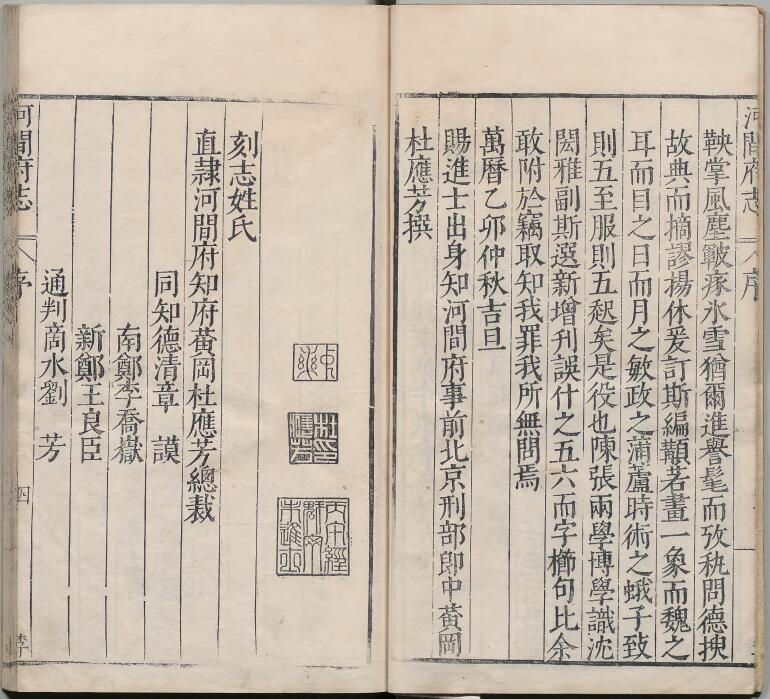 河間府志 序
鞅掌風塵皸瘃氷雪猶爾進譽髦而攷秇問德掞
故典而摘謬揚休爰訂斯編顜若畫一象而魏之
耳而目之日而月之敏政之蒲蘆時術之蛾子致
則五至服則五起矣是役也陳張兩學博學識沈
閎雅副斯選新增刋誤什之五六而字櫛句比余
敢附於竊取知我罪我所無問焉
萬曆乙卯仲秋吉旦
賜進士出身知河間府事前北京刑部郎中黃岡
杜應芳撰
刻志姓氏
直隷河間府知府黃岡杜應芳總裁
同知德清章 謨
南鄭李喬嶽
新鄭王良臣
通判商水劉 芳
河間府志 序 四